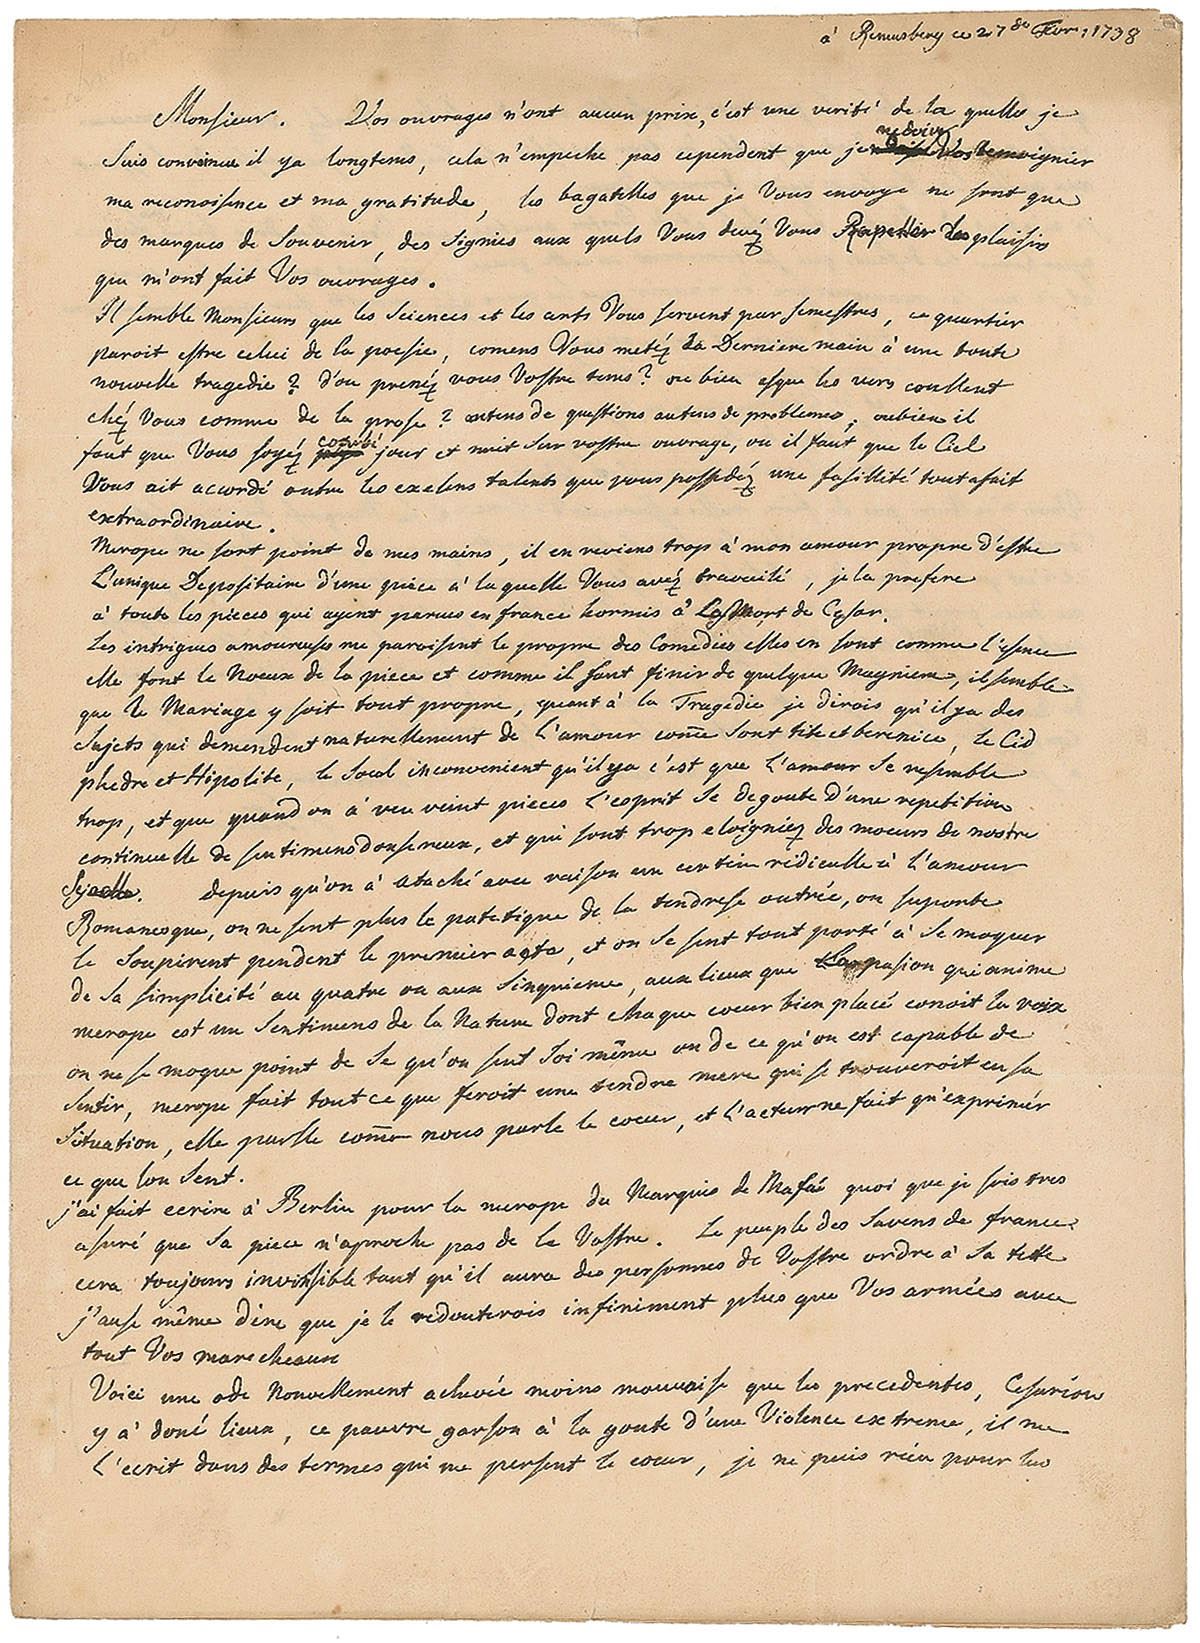 à Remusberg ce 27 de Fevr: 1738
Monsieur. Vos ouvrages n'ont aucun prix, c'est une verité de la quelle je
suis convaincu il ya longtems, cela n'empeche pas cependent que je ne doive Vous temoignier
ma reconoisence et ma gratitude, les bagatelles que je Vous envoye ne sont que
des marques de Souvenir, des Signies aux quels Vous devéz Vous Rapeller les plaisirs
que m'ont fait Vos ouvrages.
Il semble Monsieur que les Sciences et les arts Vous servent par semestres, ce quartier
paroit estre celui de la poesie, comens Vous metéz la Derniere main à une toute
nouvelle tragedie? d'ou prenéz vous Vostre tems? ou bien esque les vers coullent
chéz Vous comme de la prose? autens de questions autens de problemes, oubien il
faut que Vous soyéz courbé jour et nuit sur vostre ouvrage, ou il faut que le Ciel
Vous ait accordé outre les exelens talents que vous possedéz une fasillité toutafait
extraordinaire.
Merope ne sort point de mes mains, il en reviens trop à mon amour propre d'estre
L'unique Depositaire d'une pièce à la quelle Vous avéz travailé, je la prefere
à toute les pieces qui ayent parues en france hormis à La Mort de Cesar.
Les intrigues amoureuses me paroisent le propre des Comedies elles en sont comme l'esence
elle font le Noeux de la piece et comme il faut finir de quelque Magniere, il semble
que le Mariage y soit tout propre, quant à la Tragedie je dirois qu'il ya des
sujets qui demendent naturellement de l'amour come sont tite et berenice, le Cid
phedre et Hipolite, le seul inconvenient qu'il ya c'est que l'amour se resemble
trop, et que quand on à veu veint pieces l'esprit se degoute d'une repetition
continuelle de sentimens doussereux, et qui sont trop eloigniéz des moeurs de nostre
depuis qu'on à ataché avec raison un certein ridiculle à l'amour
Romanesque, on ne sent plus le patetique de la tendrese outrée, on suporte
le soupirent pendent le premier acte, et on se sent tout porté à se moquer
de sa simplicité au quatre ou aux Sinquieme, aux lieux que La pasion qui anime
merope est un Sentimens de la Nature dont chaque coeur bien placé conoit la voix
on ne se moque point de se qu'on sent soi même ou de ce qu'on est capable de
sentir, merope fait tout ce que feroit une tendre mere qui se trouveroit en sa
situation, elle parlle come nous parle le coeur, et l'acteur ne fait qu'exprimér
ce que lon sent.
j'ai fait ecrire à Berlin pour la merope du Marquis de Mafaé quoi que je sois tres
asuré que sa piece n'aproche pas de la Vostre. Le peuple des Savens de france
cera toujours invinsible tant qu'il aura des personnes de Vostre ordre à sa tette
j'ause même dire que je le redouterois infiniment plus que Vos armées avec
tout Vos marecheaux
Voici une ode Nouvellement achevée moins mauvaise que les precedentes, Cesarion
y à doné lieux, ce pauvre garson à la goute d'une Violence extreme, il me
l'ecrit dans des termes qui me persent le coeur, je ne puis rien pour lui